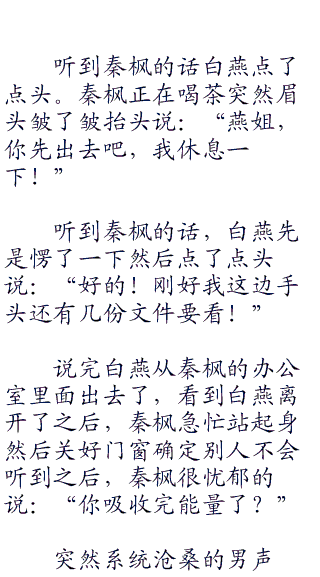 听到秦枫的话白燕点了
点头。秦枫正在喝茶突然眉
头皱了皱抬头说：“燕姐，
你先出去吧，我休息一
下！”
听到秦枫的话，白燕先
是愣了一下然后点了点头
说：“好的！刚好我这边手
头还有几份文件要看！”
说完白燕从秦枫的办公
室里面出去了，看到白燕离
开了之后，秦枫急忙站起身
然后关好门窗确定别人不会
听到之后，秦枫很忧郁的
说：“你吸收完能量了？”
突然系统沧桑的男声